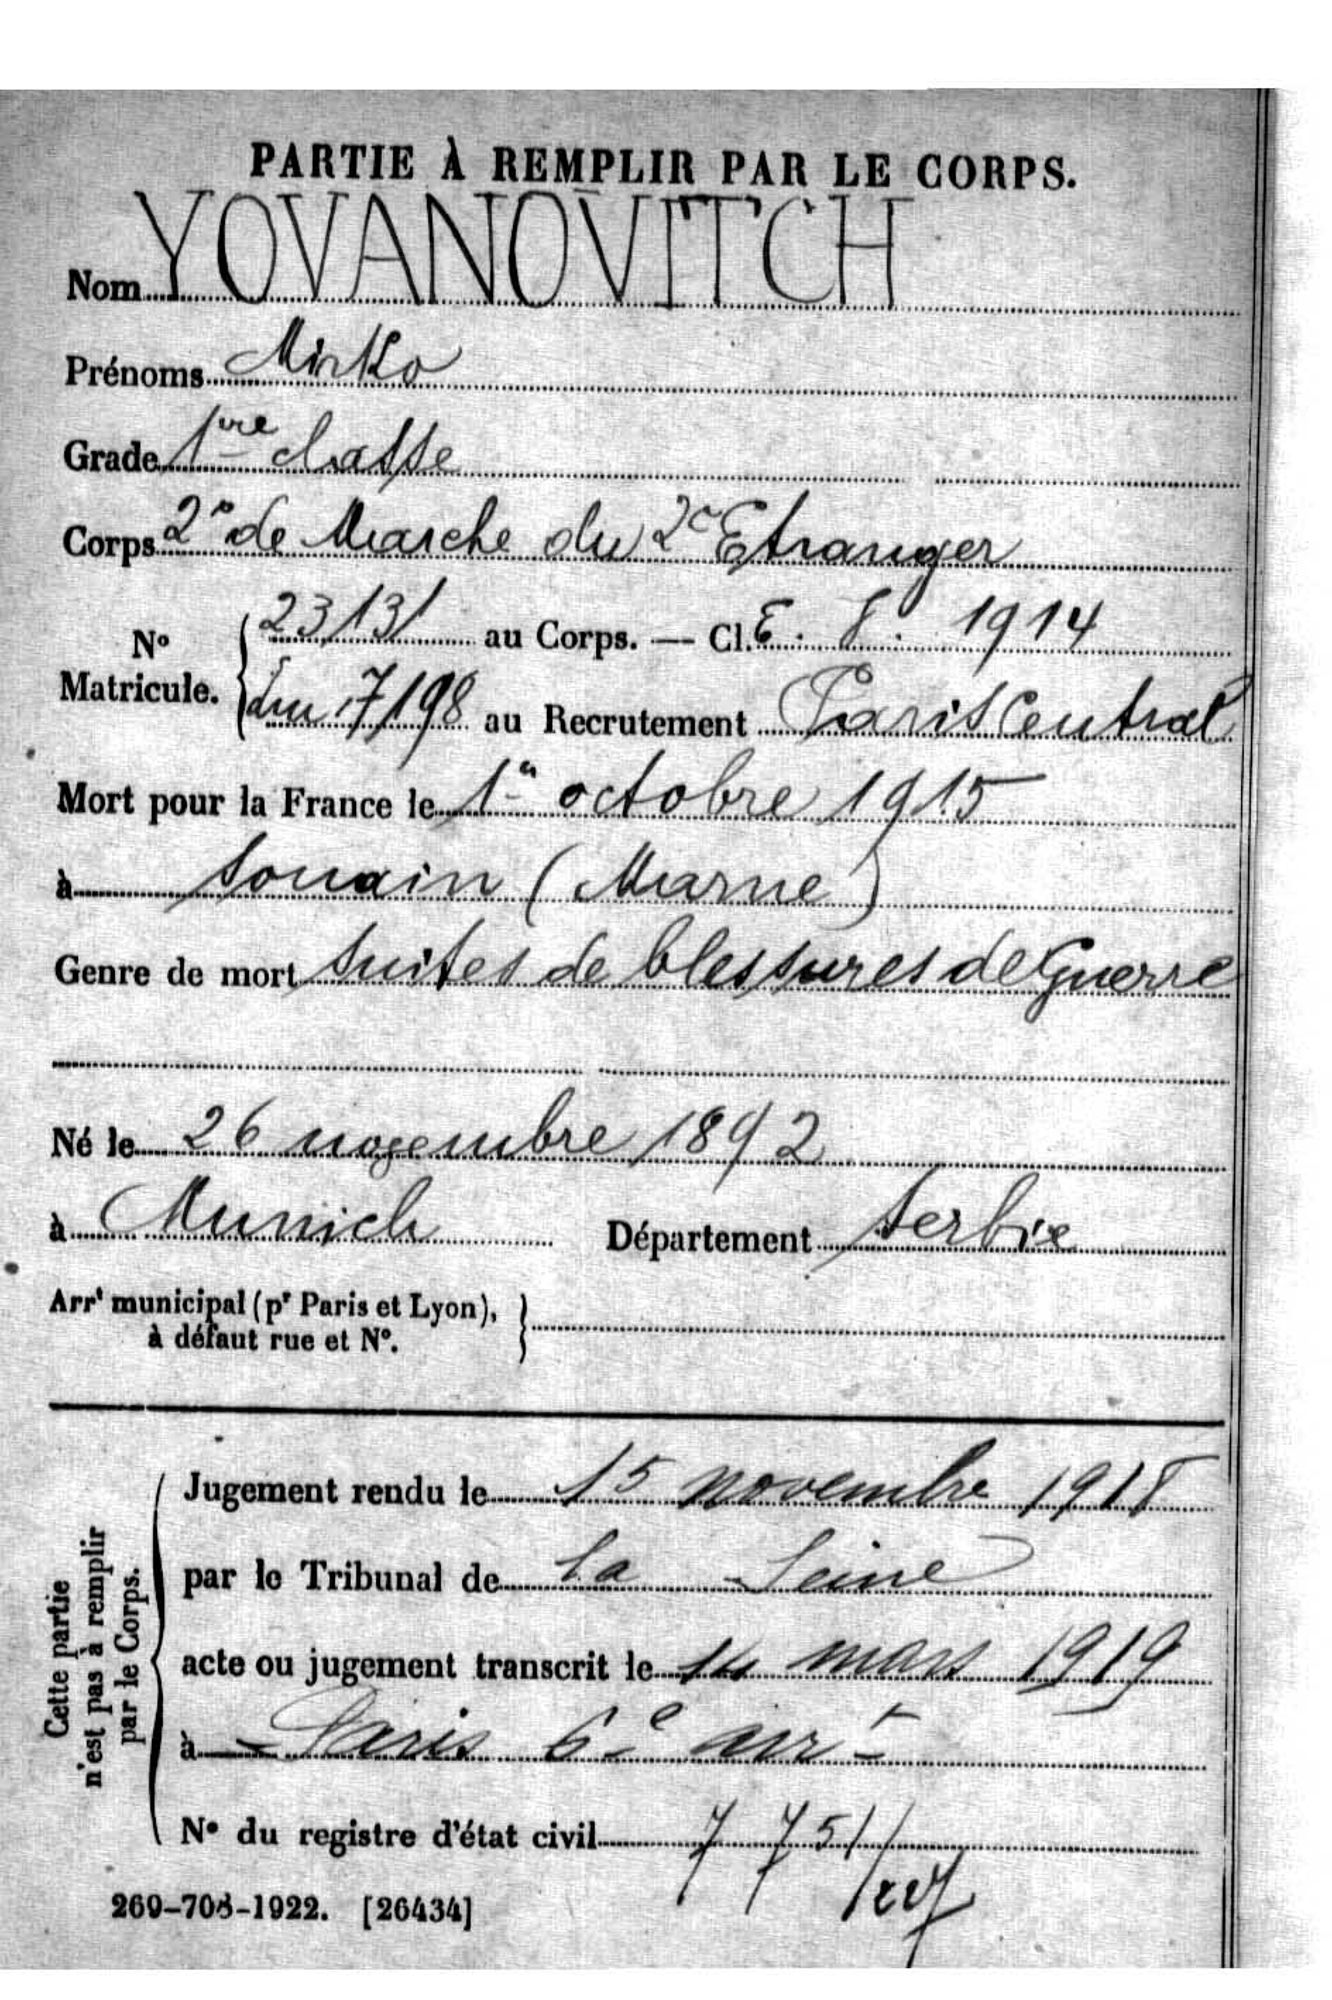 PARTIE À REMPLIR PAR LE CORPS.
Nom YOVANOVITCH
Prénoms Mirko
Grade 1re classe
Corps 2e de Marche du 2e Etranger
No Maticule. { 23131 au Corps. — Cl. E. V. 1914
17198 au Recrutement Paris Central
Mort pour la France le 1er octobre 1915
à Souain (Marne)
Genre de mort suites de blessures de Guerre
Né le 26 novembre 1892
à Munich Département Serbie
Arrt municipal (pr Paris et Lyon),
à défaut rue et No.
Cette partie n'est pas à remplir par le Corps.
Jugement rendu le 15 novembre 1918
par le Tribunal de la Seine
acte ou jugement transcrit le 14 mars 1919
à Paris 6e arrt
No du registre d'état civil
269-708-1922. [26434]